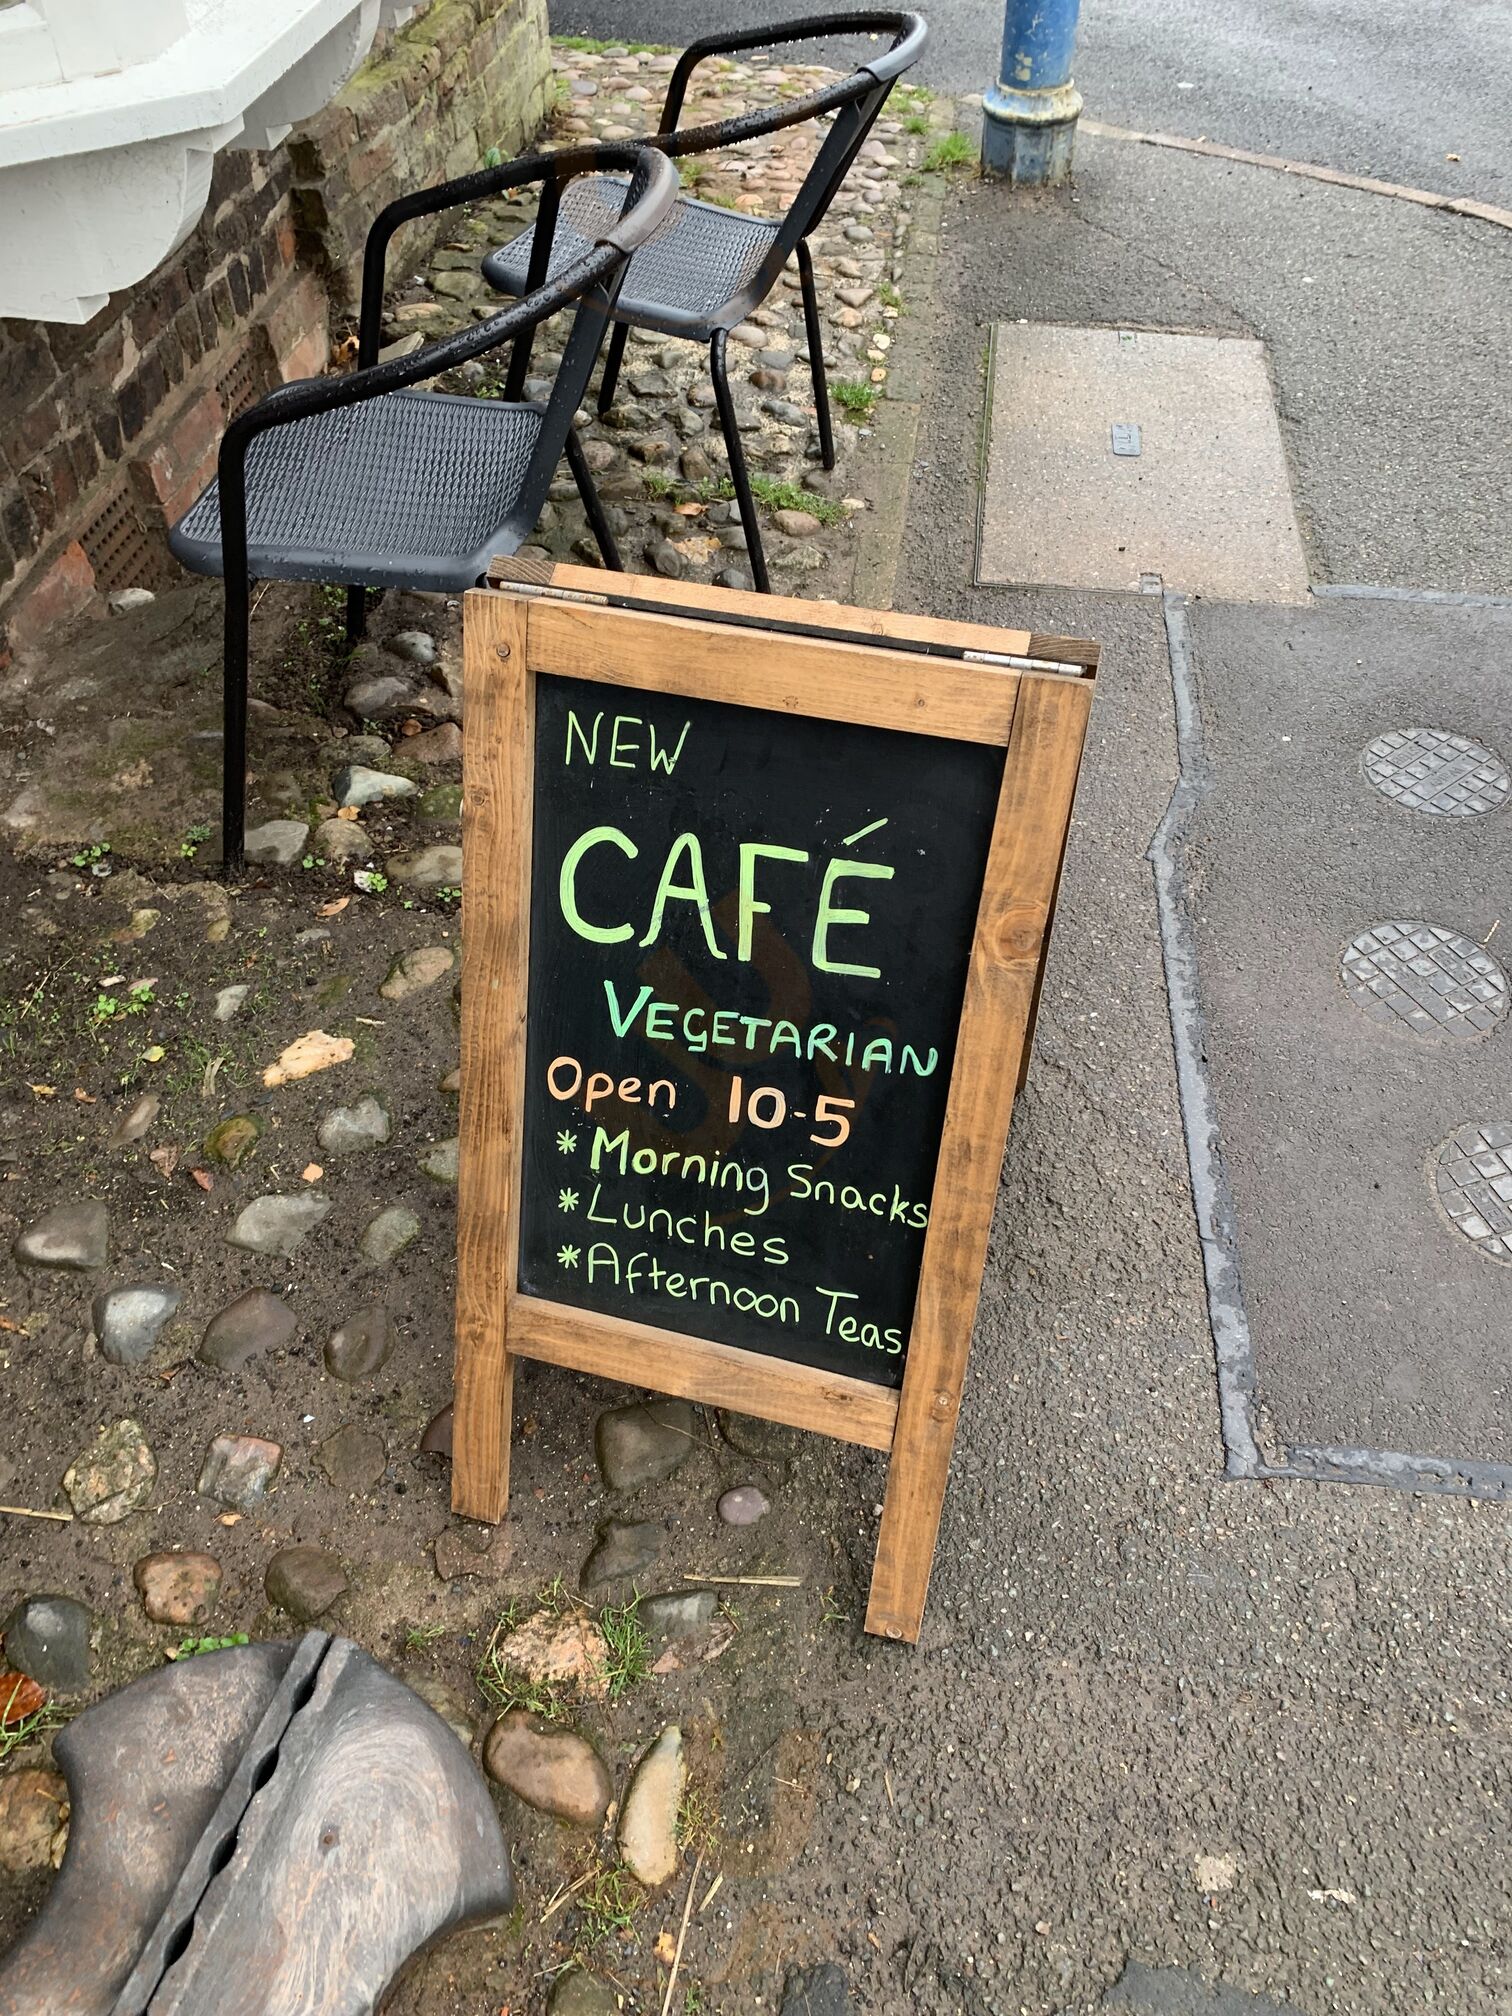 NEW
CAFÉ
VEGETARIAN
Open 10-5
* Morning Snacks
* Lunches
* Afternoon Teas